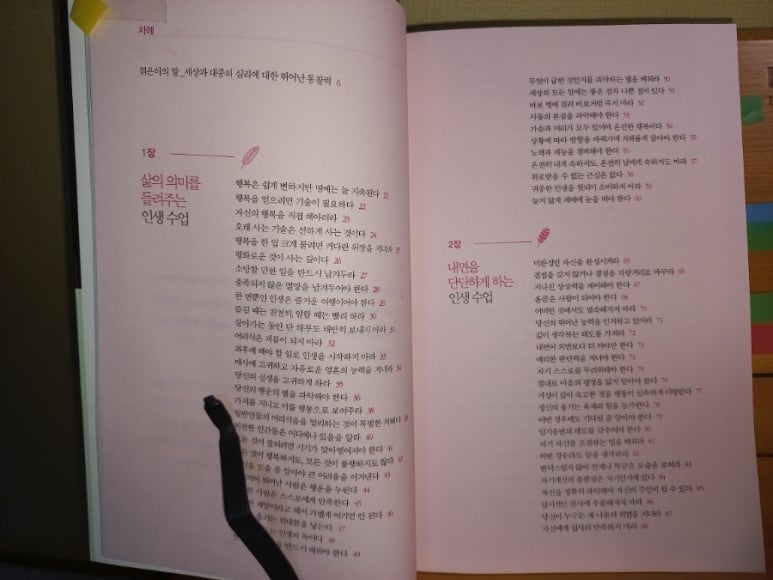 차례
엮은이의 말_세상과 대중의 심리에 대한 뛰어난 통찰력 6
1장
삶의 의미를
들려주는
인생 수업
행복은 쉽게 변하지만 명예는 늘 지속된다 21
행복을 얻으려면 기술이 필요하다 22
자신의 행복을 직접 헤아려라 23
오래 사는 기술은 선하게 사는 것이다 24
행복을 한 입 크게 물려면 커다란 위장을 지녀라 25
평화로운 것이 사는 길이다 26
소망할 만한 일을 반드시 남겨두라 27
충족되지 않은 열망을 남겨두어야 한다 28
한 번뿐인 인생은 즐거운 여행이어야 한다 29
즐길 때는 천천히, 일할 때는 빨리 하라 30
살아가는 동안 단 하루도 태만히 보내지 마라 31
어리석은 괴물이 되지 마라 32
최후에 해야 할 일로 인생을 시작하지 마라 33
매사에 고귀하고 자유로운 영혼의 능력을 지녀라 34
당신의 심성을 고귀하게 하라 35
당신의 행운의 별을 파악해야 한다 36
가치를 지니고 이를 행동으로 보여주라 38
일반인들의 어리석음을 멀리하는 것이 특별한 지혜다 39
비천한 인간들은 어디에나 있음을 알라 40
것이 잘되려면 시기가 맞아떨어져야 한다 41
것이 행복하지도, 모든 것이 불행하지도 않다 42
도울 줄 알아야 큰 어려움을 이겨낸다 43
뛰어난 사람은 행운을 누린다 44
사람은 스스로에게 만족한다 45
해서 가볍게 여기면 안 된다 46
용기는 위대함을 낳는다 47
인생의 독이다 48
반드시 배워야 한다 49
무엇이 급한 것인지를 파악하는 법을 배워라 50
세상의 모든 일에는 좋은 점과 나쁜 점이 있다 51
바보 병에 걸려 바보처럼 죽지 마라 52
사물의 본질을 파악해야 한다 53
가슴과 머리가 모두 있어야 온전한 행복이다 54
상황에 따라 방향을 바꿔가며 지혜롭게 살아야 한다 55
노력과 재능을 겸비해야 한다 56
온전히 내게 속하지도, 온전히 남에게 속하지도 마라 57
위로받을 수 없는 근심은 없다 58
귀중한 인생을 헛되이 소비하지 마라 59
늦지 않게 제때에 눈을 떠야 한다 60
2장
내면을
단단하게 하는
인생 수업
미완성인 자신을 완성시켜라 65
결점을 갖지 않거나 결점을 자랑거리로 바꾸라 66
지나친 상상력을 제어해야 한다 67
올곧은 사람이 되어야 한다 68
어떠한 것에서도 범속해지지 마라 70
당신의 뛰어난 능력을 인지하고 있어라 71
깊이 생각하는 태도를 가져라 72
내면이 외면보다 더 커야만 한다 73
예리한 판단력을 지녀야 한다 74
자기 스스로를 두려워해야 한다 75
절대로 마음의 평정을 잃지 말아야 한다 76
지성이 깊이 숙고한 것을 행동이 신속하게 이행한다 77
정신의 용기는 육체의 힘을 능가한다 78
어떤 경우에도 기다릴 줄 알아야 한다 79
임기응변의 태도를 갖추어야 한다 80
자기 자신을 조절하는 법을 배워라 81
어떤 경우라도 깊을 생각하라 82
변덕스럽지 않아 언제나 똑같은 모습을 보여라 83
자기개선의 출발점은 자기인식에 있다 84
자신을 정확히 파악해야 자신의 주인이 될 수 있다 85
일시적인 찬사에 우쭐해지지 마라 86
당신이 누구든 제 나름의 위엄을 지녀라 87
자신에게 섣사리 만족하지 마라 88